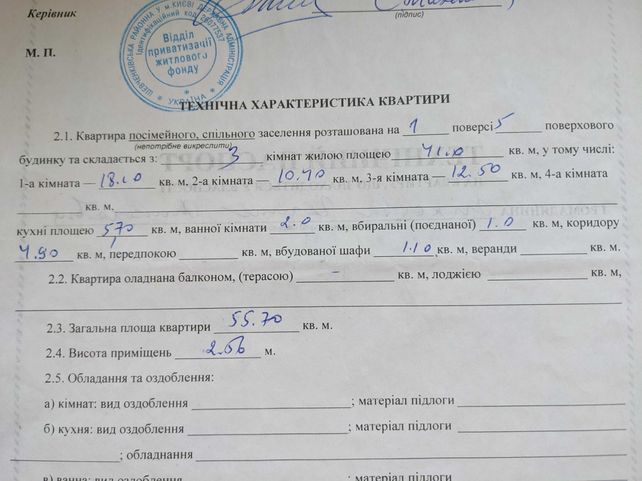 Керівник
(підпис)
М. П.
ШЕВЧЕНКІВСЬКА РАЙОННА У М.КИЄВІ ДЕРЖАВНА АДМІНІСТРАЦІЯ
Ідентифікаційний код 26077537
Відділ
приватизації
житлового
фонду
* УКРАЇНА *
ТЕХНІЧНА ХАРАКТЕРИСТИКА КВАРТИРИ
2.1. Квартира посімейного, спільного заселення розташована на 1 поверсі 5 поверхового
(непотрібне викреслити)
будинку та складається з: 3 кімнат жилою площею 41.0 кв. м, у тому числі:
1-а кімната — 18.10 кв. м. 2-а кімната — 10.40 кв. м. 3-я кімната — 12.50 кв. м, 4-а кімната
кв. м.
кухні площею 5,70 кв. м, ванної кімнати 2.0 кв. м, вбиральні (поєднаної) 1.0 кв. м, коридору
4.90 кв. м, передпокою кв. м, вбудованої шафи 1.10 кв. м, веранди кв. м.
2.2. Квартира оладнана балконом, (терасою) – кв. м, лоджією кв. м,
2.3. Загальна площа квартири 55.70 кв. м.
2.4. Висота приміщень 2.56 м.
2.5. Обладання та оздоблення:
а) кімнат: вид оздоблення ; матеріал підлоги
б) кухня: вид оздоблення ; матеріал підлоги
; обладнання
в) ванна: вид оздоблення ; матеріал підлоги